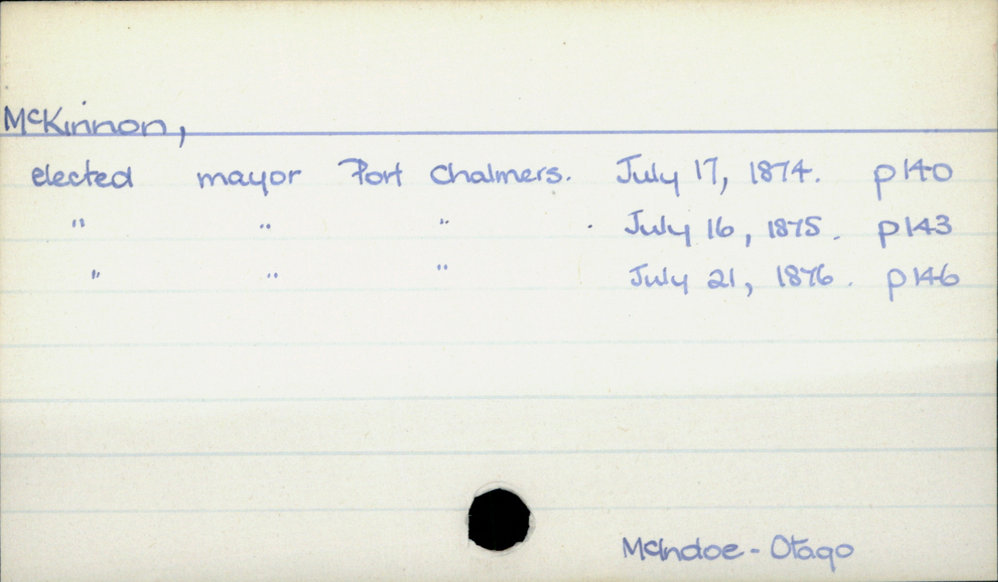 McKinnon,
elected mayor Port Chalmers. July 17, 1874. p140
" " " . July 16, 1875. p143
" " " July 21, 1876. p146
McIndoe - Otago